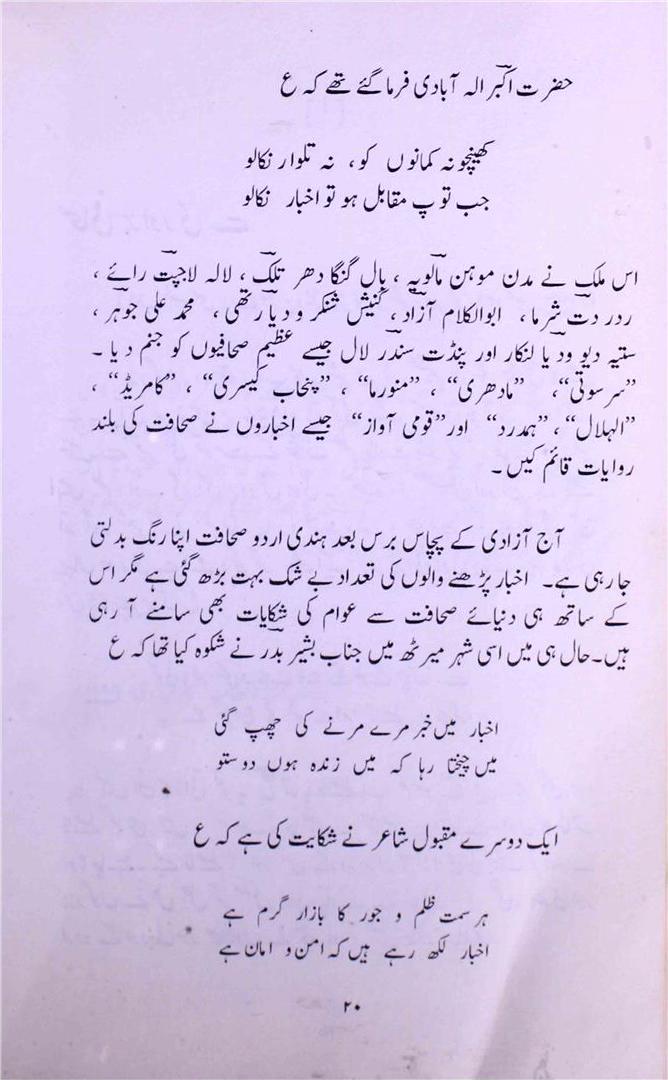 حضرت اکبر الہ آبادی فرما گئے تھے کہ ع
کھینچو نہ کمانوں کو، نہ تلوار نکالو
جب توپ مقابل ہو تو اخبار نکالو
اس ملک نے مدن موہن مالویہ، بال گنگا دھر تلک، لالہ لاجپت رائے،
ردر دت شرما، ابوالکلام آزاد، گنیش شنکر ودیارتھی، محمد علی جوہر،
ستیہ دیو ودیا لنکار اور پنڈت سندر لال جیسے عظیم صحافیوں کو جنم دیا۔
”سرسوتی“، ”مادھری“، ”منورما“، ”پنجاب کیسری“، ”کامریڈ“،
”الہلال“، ”ہمدرد“ اور ”قومی آواز“ جیسے اخباروں نے صحافت کی بلند
روایات قائم کیں۔
آج آزادی کے پچاس برس بعد ہندی اردو صحافت اپنا رنگ بدلتی
جا رہی ہے۔ اخبار پڑھنے والوں کی تعداد بے شک بہت بڑھ گئی ہے مگر اس
کے ساتھ ہی دنیائے صحافت سے عوام کی شکایات بھی سامنے آ رہی
ہیں۔ حال ہی میں اسی شہر میرٹھ میں جناب بشیر بدر نے شکوہ کیا تھا کہ ع
اخبار میں خبر مرے مرنے کی چھپ گئی
میں چیختا رہا کہ میں زندہ ہوں دوستو
ایک دوسرے مقبول شاعر نے شکایت کی ہے کہ ع
ہر سمت ظلم و جور کا بازار گرم ہے
اخبار لکھ رہے ہیں کہ امن و امان ہے
۲۰